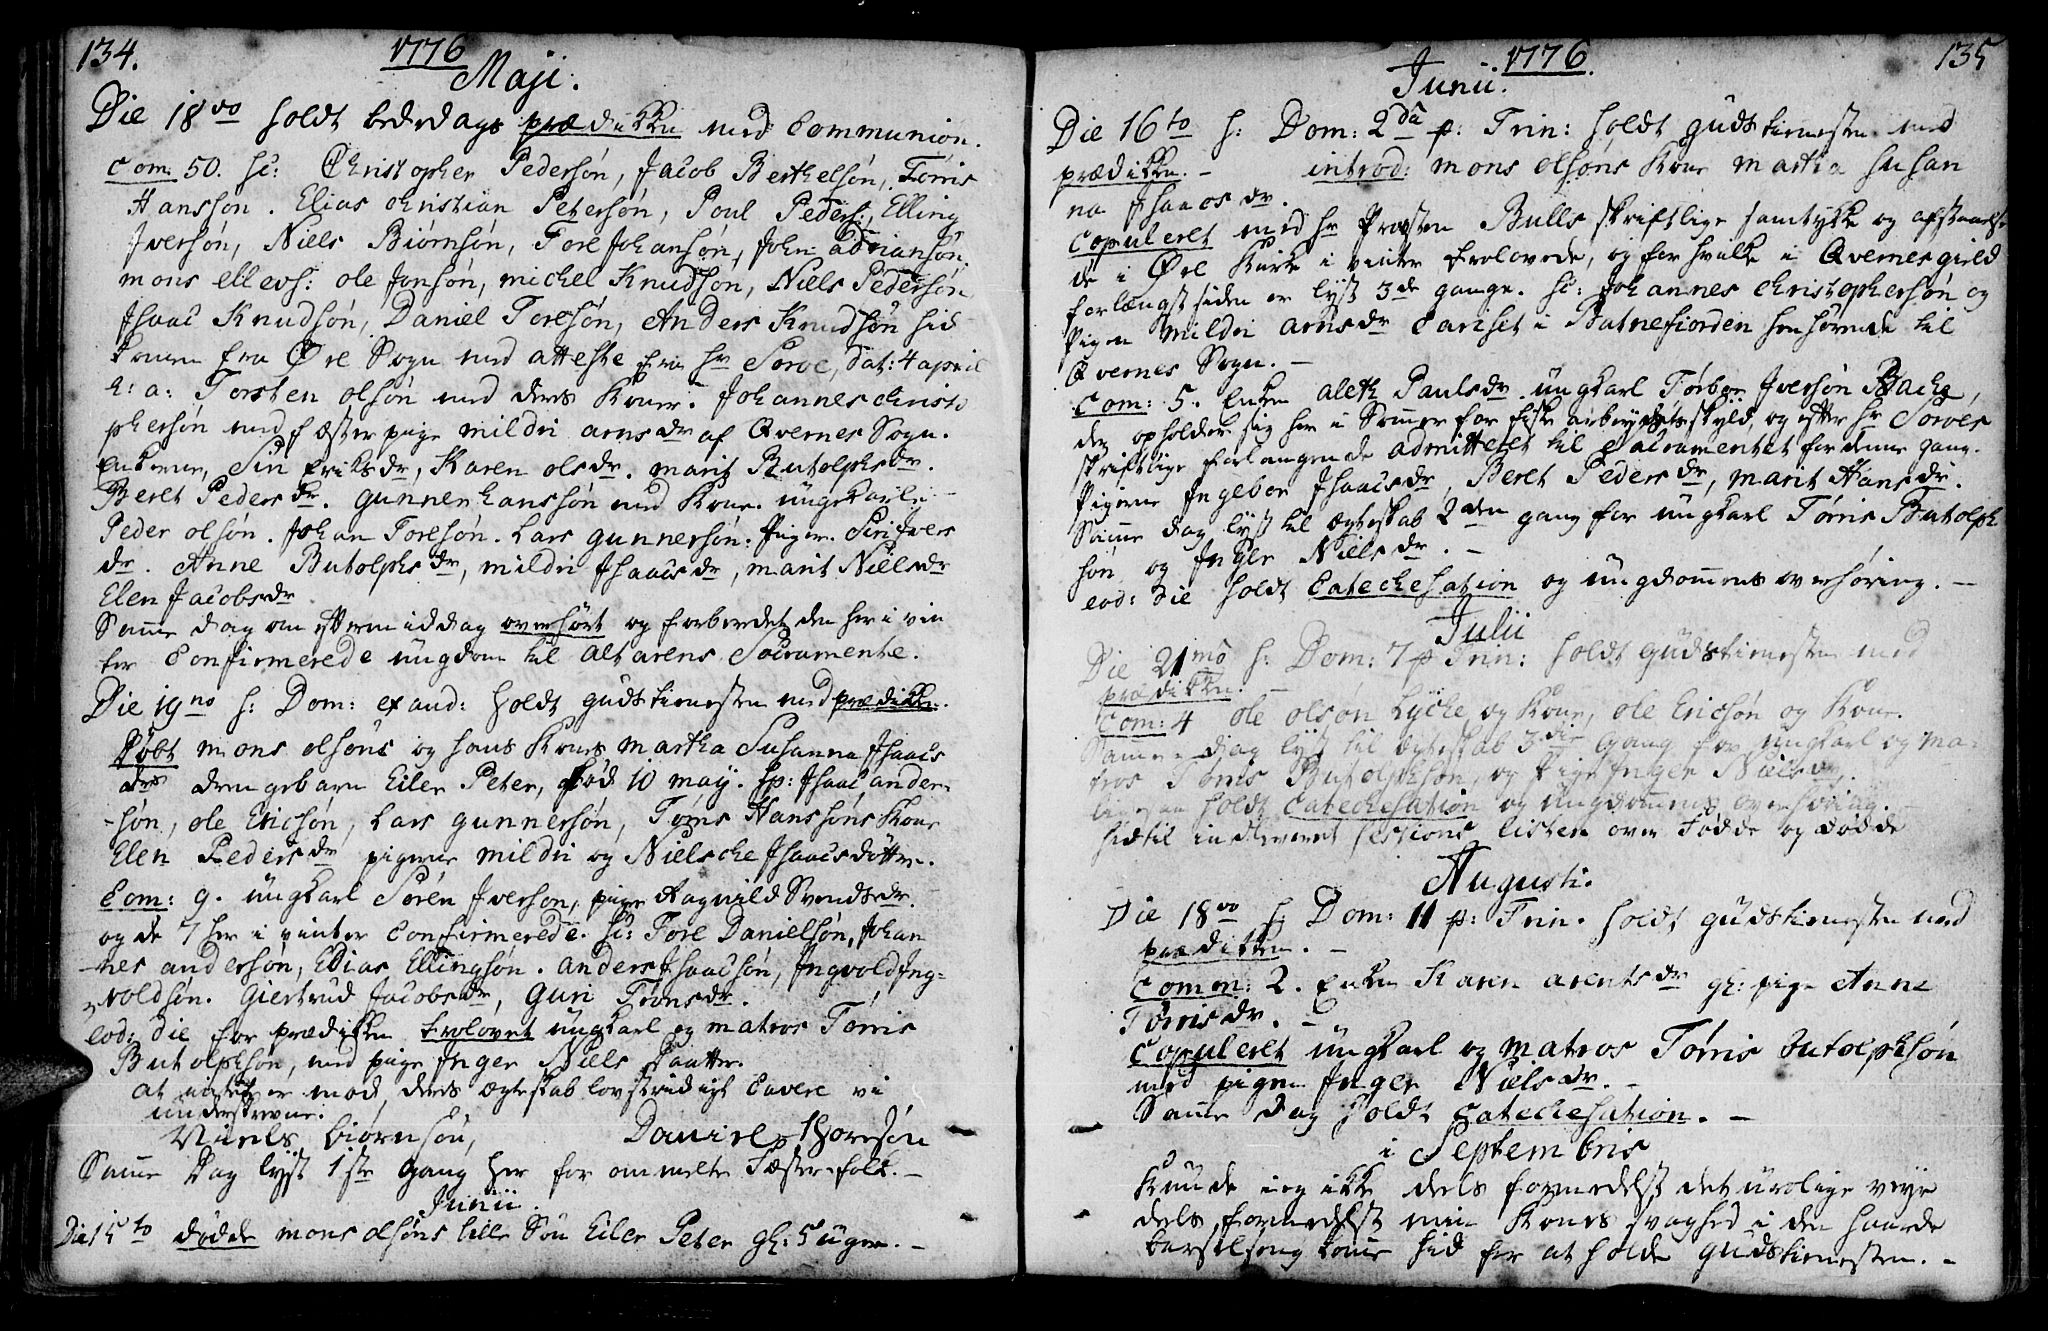 134.
1776
Maji.
Die 18vo holdt bededags prædikken med Communion.
Com: 50. sc: Christopher Pedersøn, Jacob Berthelsøn, Tørris
Hanssøn. Elias Christian Petersøn, Poul Peders:, Elling
Iversøn, Niels Biørnsøn, Tore Johansøn, John Adriansøn.
mons ellevs: ole Jonsøn, michel Knudsøn, Niels Pedersøn
Isaac Knudsøn, Daniel Toresøn, Anders Knudsøn hid
komen fra Øre Sogn med atteste fra hr Sorve, dat: 4 april
h: a: Torsten olsøn med deres Koner. Johannes Christo
phersøn med fæster pige mildri arnsdr af Qvernes Sogn.
Enkerne, Siri Eriksdr, Karen olsdr. marit Butolphsdr.
Beret Pedersdr. gunner hanssøn med Kone. ungkarle
Peder olsøn. Johan Toresøn. Lars gunnersøn: Piger. Siri Ivers
dr. Anne Butolphsdr, mildri Isaacsdr, marit Nielsdr
Elen Jacobsdr
Samme dag om eftermiddag overhørt og forberedet den her i vin
ter Confirmerede ungdom til Altarens Sacramente.
Die 19no h: Dom: exaud: holdt gudstienesten med prædikken.
Døbt mons olsøns og hans Kones martha Susanna Isaacs
drs drengebarn Eiler Peter, fød 10 may. Sp: Isaac ander-
-søn, ole Ericsøn, Lars gunnersøn, Tørris Hanssøns Kone
Elen Pedersdr pigerne mildri og Nielsche Isaacsdøttre.
Com: 9. ungkarl Søren Iversøn, pige Ragnild Svendsdr.
og de 7 her i vinter Confirmerede. sc: Tore Danielsøn, Johan
nes andersøn, Elias Ellingsøn. anders Isaacsøn, Ingvold Ing-
voldsøn. Giertrud Jacobsdr, Guri Tronsdr.
eod: die for prædikken trolovet ungkarl og matros Tørris
Butolphsøn, med pige Inger Niels Daatter.
at intet er mod deres ægteskab lovstridigt Cavere vi
underskrevne.
Niels biørnsøn, Daniel thoresøn
Samme Dag lyst 1ste gang her for ommelte Fæste-folk. -
Junii.
Die 15to døde mons olsøns lille Søn Eiler Peter gl: 5 uger. -
1776.
135
Junii.
Die 16to h: Dom: 2da p: Trin: holdt gudstienesten med
prædikken. - introd: mons olsøns Kone martha susan
na Isaacsdr.
Copuleret med hr Præsten Bulls skriftlige samtykke og afstaaelse
de i Øre Kirke i vinter trolovede, og for hvilke i Qvernes gield
forlængst siden er lyst 3de gange. sc: Johannes Christophersøn og
Pigen Mildri Arnsdr Cariset i Batnefiorden henhørende til
Qvernes Sogn. -
Com: 5. Enken Aleth Paulsdr. ungkarl Torber Iversøn Backe,
der opholder sig her i Sommer for fiske arbeydets skyld, og efter hr Sorves
skriftlige forlangende admitteret til Sacramentet for denne gang.
Pigerne Ingebor Isaacsdr, Beret Pedersdr, marit Hansdr.
Samme dag lyst til ægteskab 2den gang for ungkarl Tørris Butolph
søn og Inger Nielsdr. -
eod: die holdt Catechesation og ungdommens overhøring. -
Julii
Die 21mo h: Dom: 7 p Trin: holdt gudstienesten med
prædikken. -
Com: 4 ole olsøn Lyche og Kone, ole Ericsøn og Kone.
Samme dag lyst til ægteskab 3die gang for ungkarl og ma-
tros Tørris Butolphsøn og Pige Inger Nielsdr,
ligesaa holdt Catechesation og ungdommens overhøring.
hidtil indleveret sessions listen over Fødde og dødde
Augusti.
Die 18vo h: Dom: 11 p: Trin. holdt gudstienesten med
prædikken. -
Common: 2. Enken Karen arentsdr gl: pige Anne
Tørrisdr. -
Copuleret ungkarl og matros Tørris butolphsøn
med pigen Inger Nielsdr. -
Samme dag holdt Catechesation. -
i Septembris
Kunde ieg ikke deels formedelst det urolige veyr
deels formedelst min Kones svaghed i den haarde
barselseng komme hid for at holde gudstienesten. -